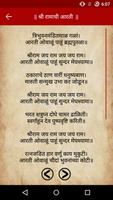 6:07
|| श्री रामाची आरती ||
त्रिभुवनमंडितमाळ गळां।
आरती ओवाळूं पाहूं ब्रह्मपुतळा॥
श्रीराम जय राम जय जय राम।
आरती ओवाळूं पाहूं सुन्दर मेघश्यामा॥
ठकाराचे ठाण वारीं धनुष्यबाण।
मारुती सन्मुख उभा कर जोडून॥
श्रीराम जय राम जय जय राम।
आरती ओवाळूं पाहूं सुन्दर मेघश्यामा॥
भरत शत्रुघ्न दोघे चामर ढाळिती।
स्वर्गाहून देव पुष्पवृष्टि करिती॥
श्रीराम जय राम जय जय राम।
आरती ओवाळूं पाहूं सुन्दर मेघश्यामा॥
रत्नजडित हार वर्णूं काय मुकुटी।
आरती ओवाळूं चौदा भुवनांच्या कोटी॥